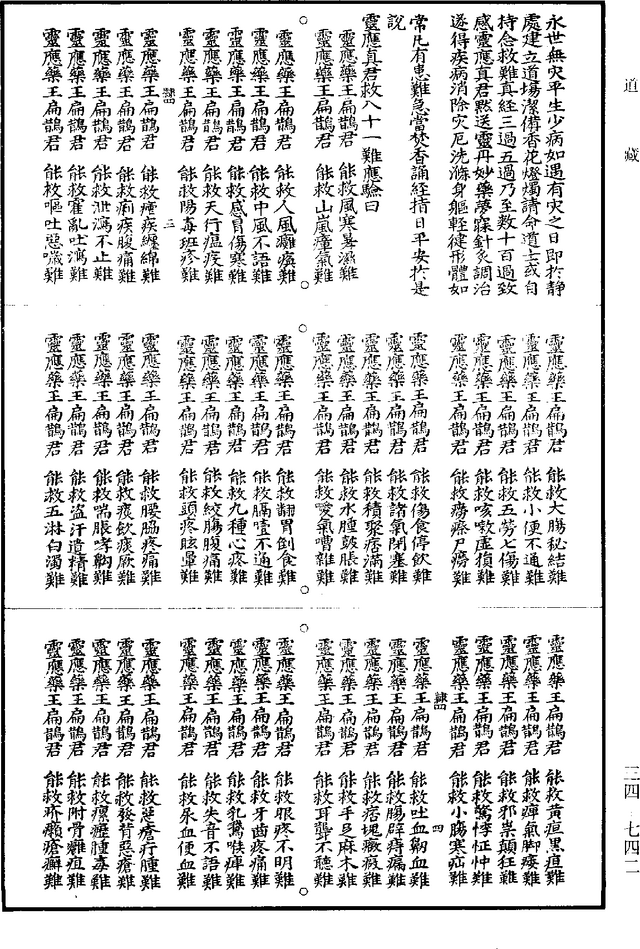 道藏
永世無灾平生少病如遇有灾之日即扵静
處建立道場潔備香花燈燭請命道士或自
持念救難真經三過五過乃至数十百過致
感靈應真君黙送靈丹妙藥夢寐針灸調治
遂得疾病消除灾厄洗滌身軀輕徤形體如
常凡有患難急當焚香誦經指日平安扵是
説
靈應真君救八十一難應驗曰
靈應藥王扁鵲君 能救風寒暑濕難
靈應藥王扁鵲君 能救山嵐瘴氣難
靈應藥王扁鵲君 能救人風癱瘓難
靈應藥王扁鵲君 能救中風不語難
靈應藥王扁鵲君 能救感冒傷寒難
靈應藥王扁鵲君 能救天行瘟疾難
靈應藥王扁鵲君 能救陽毒斑疹難
三
靈應藥王扁鵲君 能救瘧疾纏綿難
靈應藥王扁鵲君 能救痢疾腹痛難
靈應藥王扁鵲君 能救泄瀉不止難
靈應藥王扁鵲君 能救霍亂吐瀉難
靈應藥王扁鵲君 能救嘔吐惡噦難
靈應藥王扁鵲君 能救大腸秘結難
靈應藥王扁鵲君 能救小便不通難
靈應藥王扁鵲君 能救五勞七傷難
靈應藥王扁鵲君 能救咳嗽虚損難
靈應藥王扁鵲君 能救癆瘵尸癆難
靈應藥王扁鵲君 能救傷食停飲難
靈應藥王扁鵲君 能救諸氣閉塞難
靈應藥王扁鵲君 能救積聚痞滿難
靈應藥王扁鵲君 能救水腫皷脹難
靈應藥王扁鵲君 能救噯氣嘈雜難
靈應藥王扁鵲君 能救翻胃倒食難
靈應藥王扁鵲君 能救膈噎不通難
靈應藥王扁鵲君 能救九種心疼難
靈應藥王扁鵲君 能救絞腸腹痛難
靈應藥王扁鵲君 能救頭疼眩暈難
靈應藥王扁鵲君 能救腰脇疼痛難
靈應藥王扁鵲君 能救痰飲痰厥難
靈應藥王扁鵲君 能救喘脹哮齁難
靈應藥王扁鵲君 能救盗汗遺精難
靈應藥王扁鵲君 能救五淋白濁難
靈應藥王扁鵲君 能救黄疸黒疸難
靈應藥王扁鵲君 能救痺氣脚痿難
靈應藥王扁鵲君 能救邪祟顛狂難
靈應藥王扁鵲君 能救驚悸怔忡難
靈應藥王扁鵲君 能救小腸寒疝難
四
靈應藥王扁鵲君 能救吐血衂血難
靈應藥王扁鵲君 能救腸澼痔漏難
靈應藥王扁鵲君 能救痞塊癥瘕難
靈應藥王扁鵲君 能救手足麻木難
靈應藥王扁鵲君 能救耳聾不聽難
靈應藥王扁鵲君 能救眼疼不明難
靈應藥王扁鵲君 能救牙齒疼痛難
靈應藥王扁鵲君 能救乳鵞喉痺難
靈應藥王扁鵲君 能救失音不語難
靈應藥王扁鵲君 能救尿血便血難
靈應藥王扁鵲君 能救惡瘡疔腫難
靈應藥王扁鵲君 能救發背惡瘡難
靈應藥王扁鵲君 能救瘰癧腫毒難
靈應藥王扁鵲君 能救附骨癰疽難
靈應藥王扁鵲君 能救疥癩瘡癬難
三四-七四二